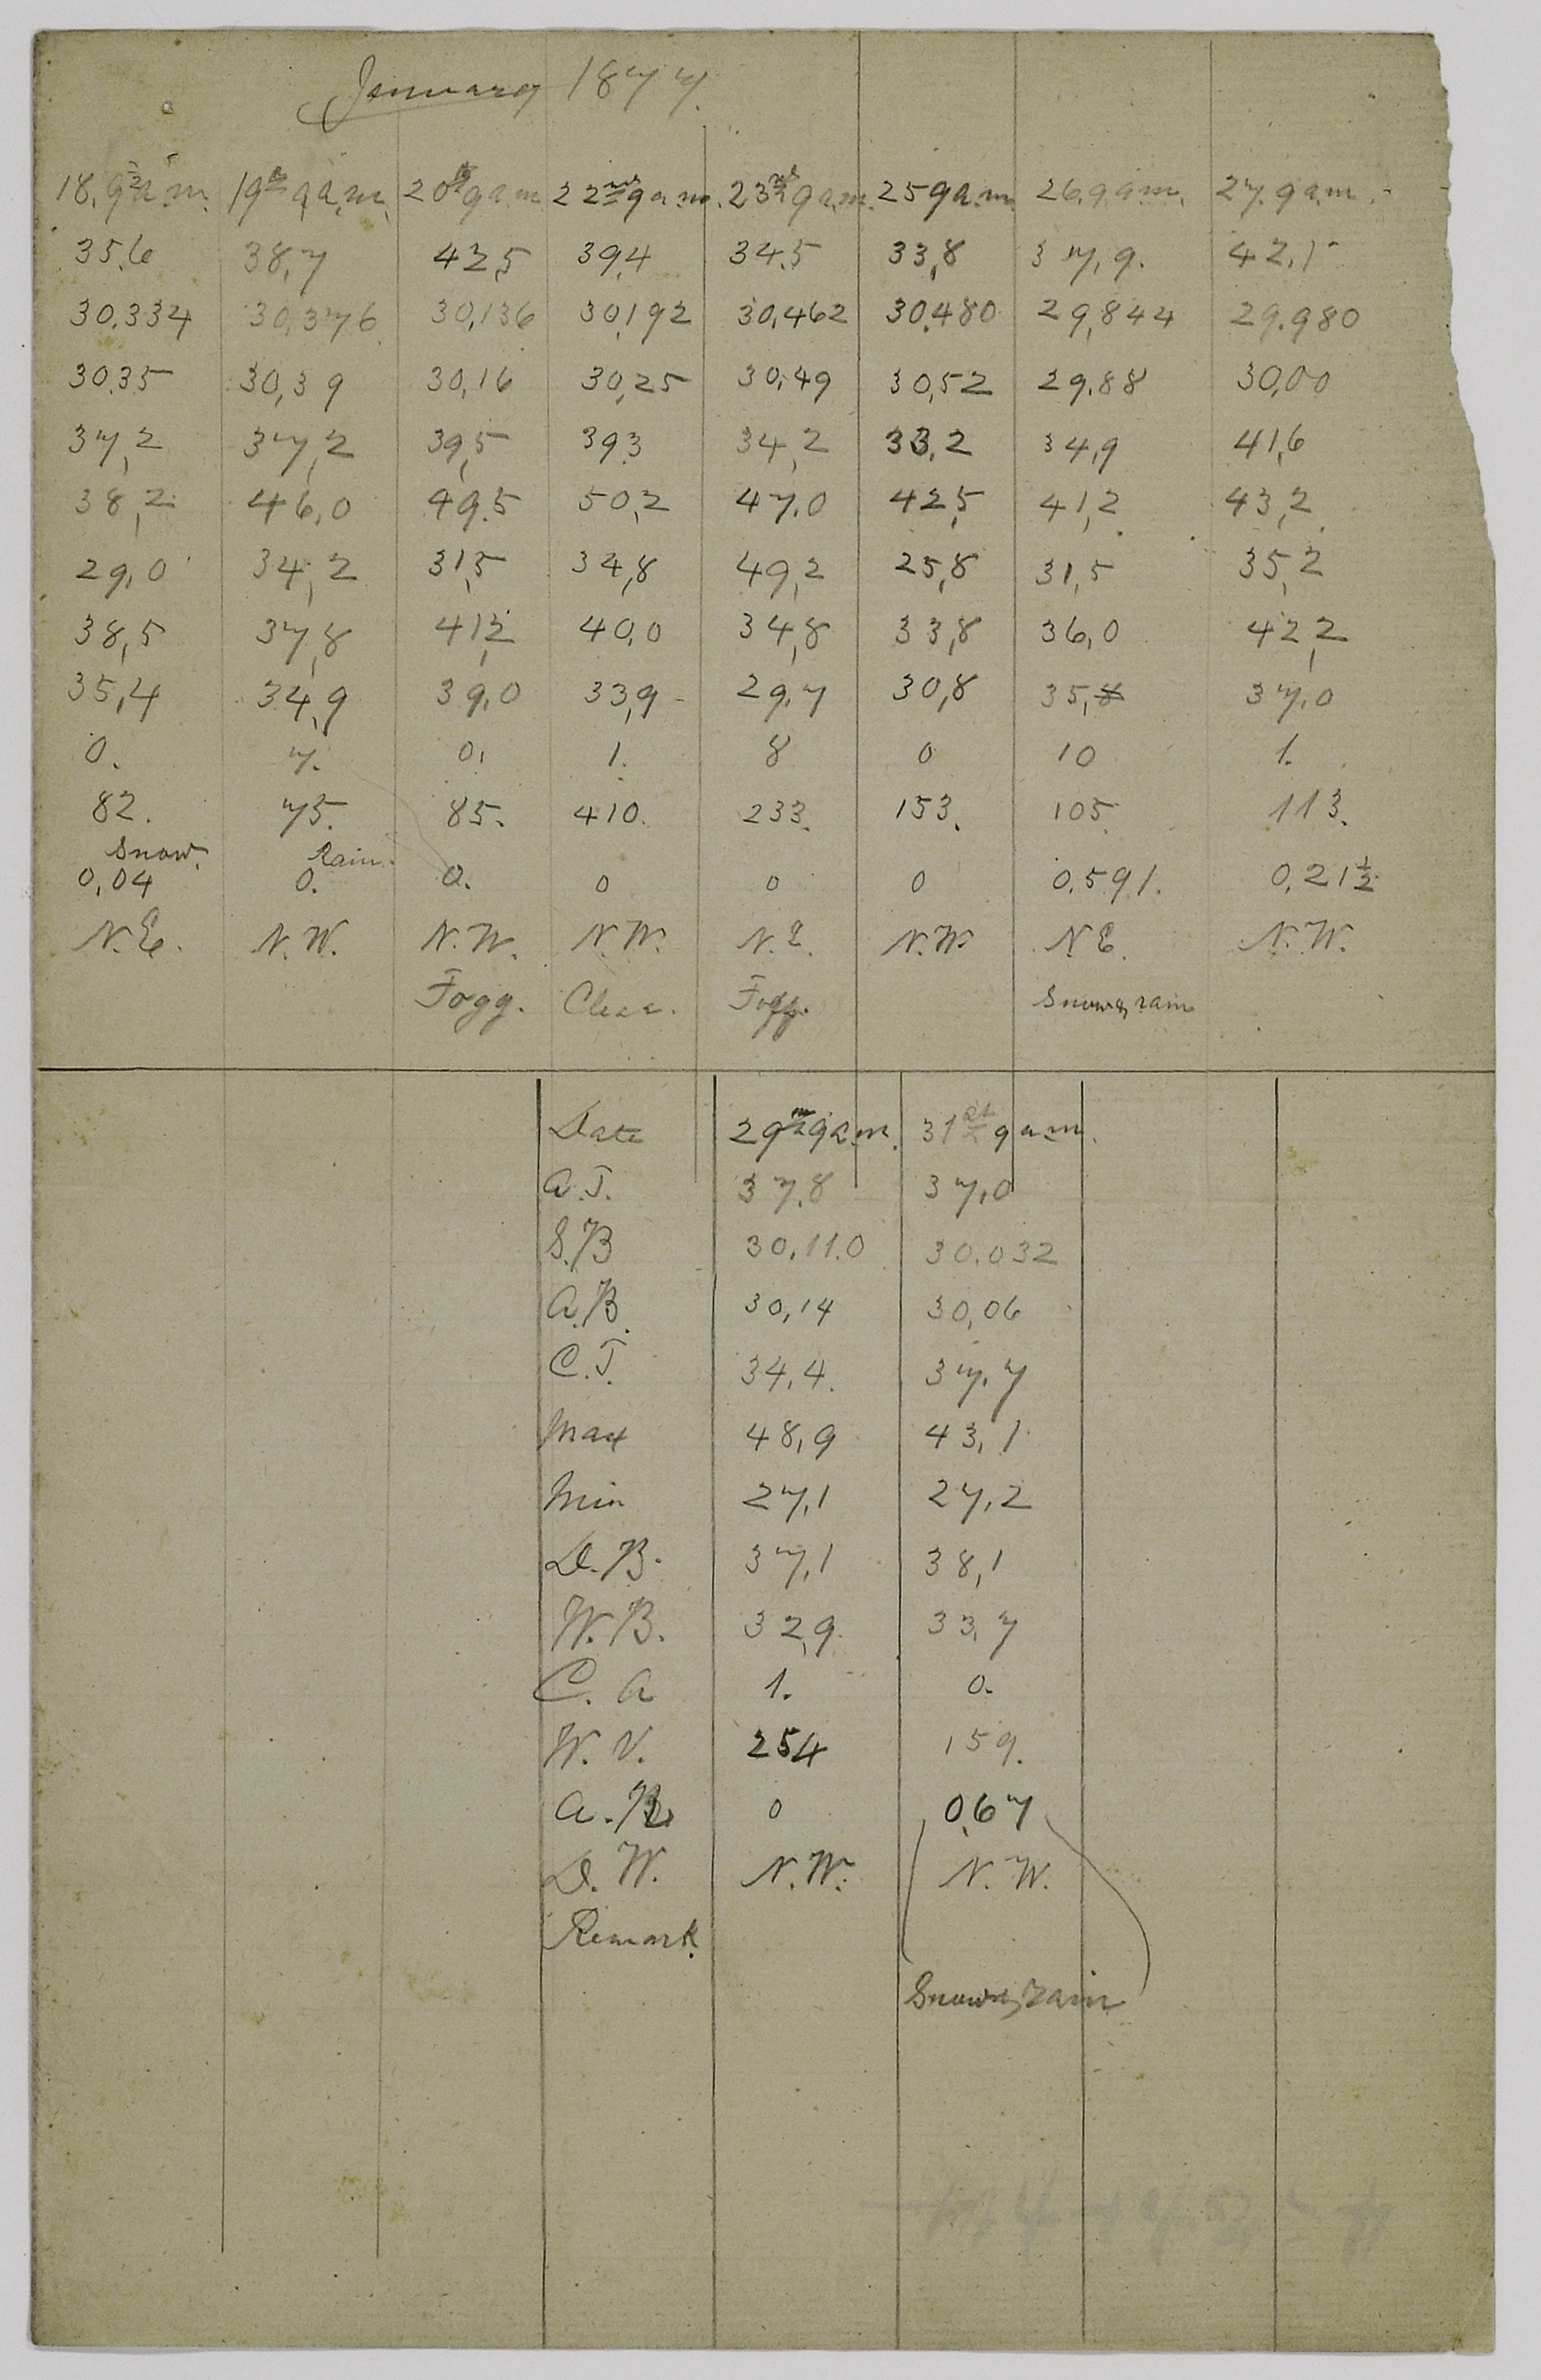 January 1877.
18, 9 1/2 a.m. 19th 9 a.m. 20th 9 a.m 22nd 9 a.m. 23rd 9 a.m. 25 9 a.m. 26. 9 a.m. 27. 9 a.m.
35.6 38,7 42,5 39,4 34.5 33,8 37,9. 42,1
30.334 30,376 30,136 30,192 30,462 30.480 29,844 29.980
30.35 30,39 30,16 30,25 30,49 30,52 29.88 30,00
37,2 37,2 39,5 39.3 34,2 33,2 34,9 41,6
38,2 46,0 49.5 50,2 47.0 42,5 41,2 43,2
29,0 34,2 31,5 34,8 49,2 25,8 31,5 35,2
38,5 37,8 41,2 40,0 34,8 33,8 36,0 42,2
35,4 34,9 39,0 33,9 29,7 30,8 35, 37,0
0. 7. 0. 1. 8 0 10 1.
82. 75. 85. 410. 233. 153. 105. 113.
Snow. Rain.
0,04 0. 0. 0 0 0 0,591. 0,21 1/2
N.E. N.W. N.W. N.W. N.E. N.W. N.E. N.W.
Fogg. Clear. Fogg. Snow & rain
Date 29th 9 a.m. 31st 9 a.m.
A.T. 37.8 37,0
S.B 30.11.0 30.032
A.B. 30,14 30,06
C.T. 34,4. 37,7
Max 48,9 43,1
Min 27,1 27,2
D.B. 37,1 38,1
W.B. 32,9. 33,7
C. A 1. 0.
W. V. 254 159.
A. R 0 0,67
D. W. N.W. N.W.
Remark.
Snow & rain